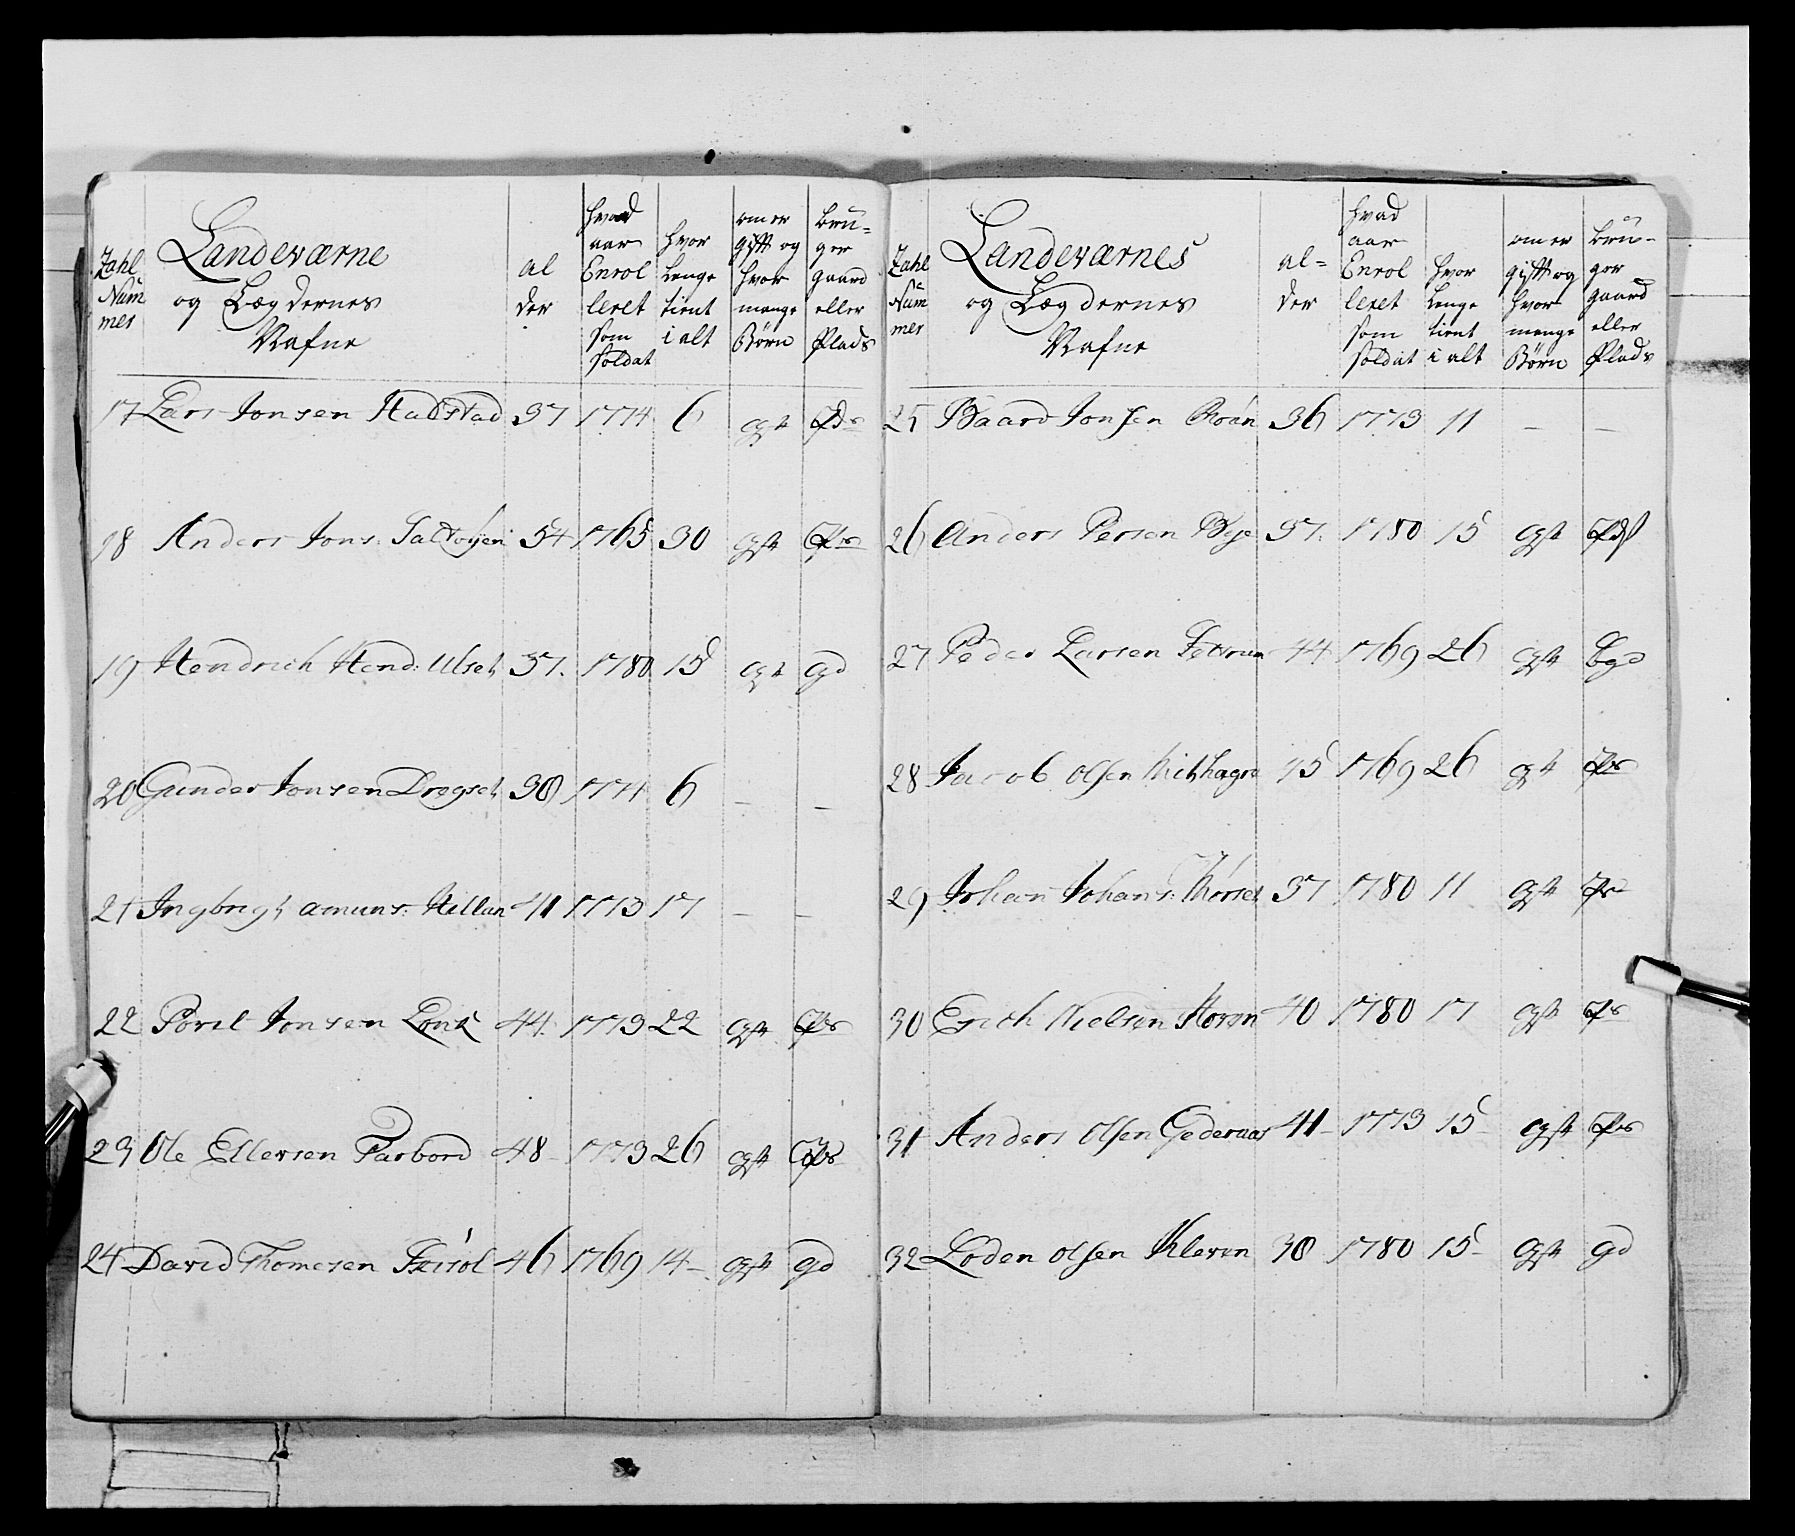 Zahl Num mer | Landeværne og Lægdernes Nafne | al der | hvad aar Enrol leret som Soldat | hvor lenge tient i alt | om er gift og hvor mange Børn | bru= ger gaard eller Plads
17 Lars Jonsen Hadstad 37 1774 6 gt Pds
18 Anders Jons: 54 1765 30 gift Ps
19 Hendrich Hend: Ulset 37. 1780 15 gt gd
20 Gunder Jonsen Dragset 38 1774 6 – –
21 Ingbrigt amuns: Hellan 41 1773 17 – –
22 Povel Jonsen 44. 1773 22 gt Ps
23 Ole Ellevsen Farbord 48 – 1773 26 gt Ps
24 David Thomesen 46 1769 14 – gt gd
Zahl Num mer | Landeværnes og Lægdernes Nafne | al= der | hvad aar Enrol leret som Soldat | hvor lenge tient i alt | om er gift og hvor mange Børn | bru= ger gaard eller Plads
25 Baard Jonsen 36 1773 11 – –
26 Anders Persen Bye 37. 1780 15 gt Pds
27 Peder Larsen 44 1769 26 gt bgd
28 Jacob Olsen 45 1769 26 gt Ps
29 Johan Johans: 37 1780 11 gt Ps
30 Erich Nielsen 40 1780 17 gt Ps
31 Anders Olsen Gederaas 41 – 1773 15 – gt Ps
32 Loden Olsen Kleven 38 1780 15 – gt gd